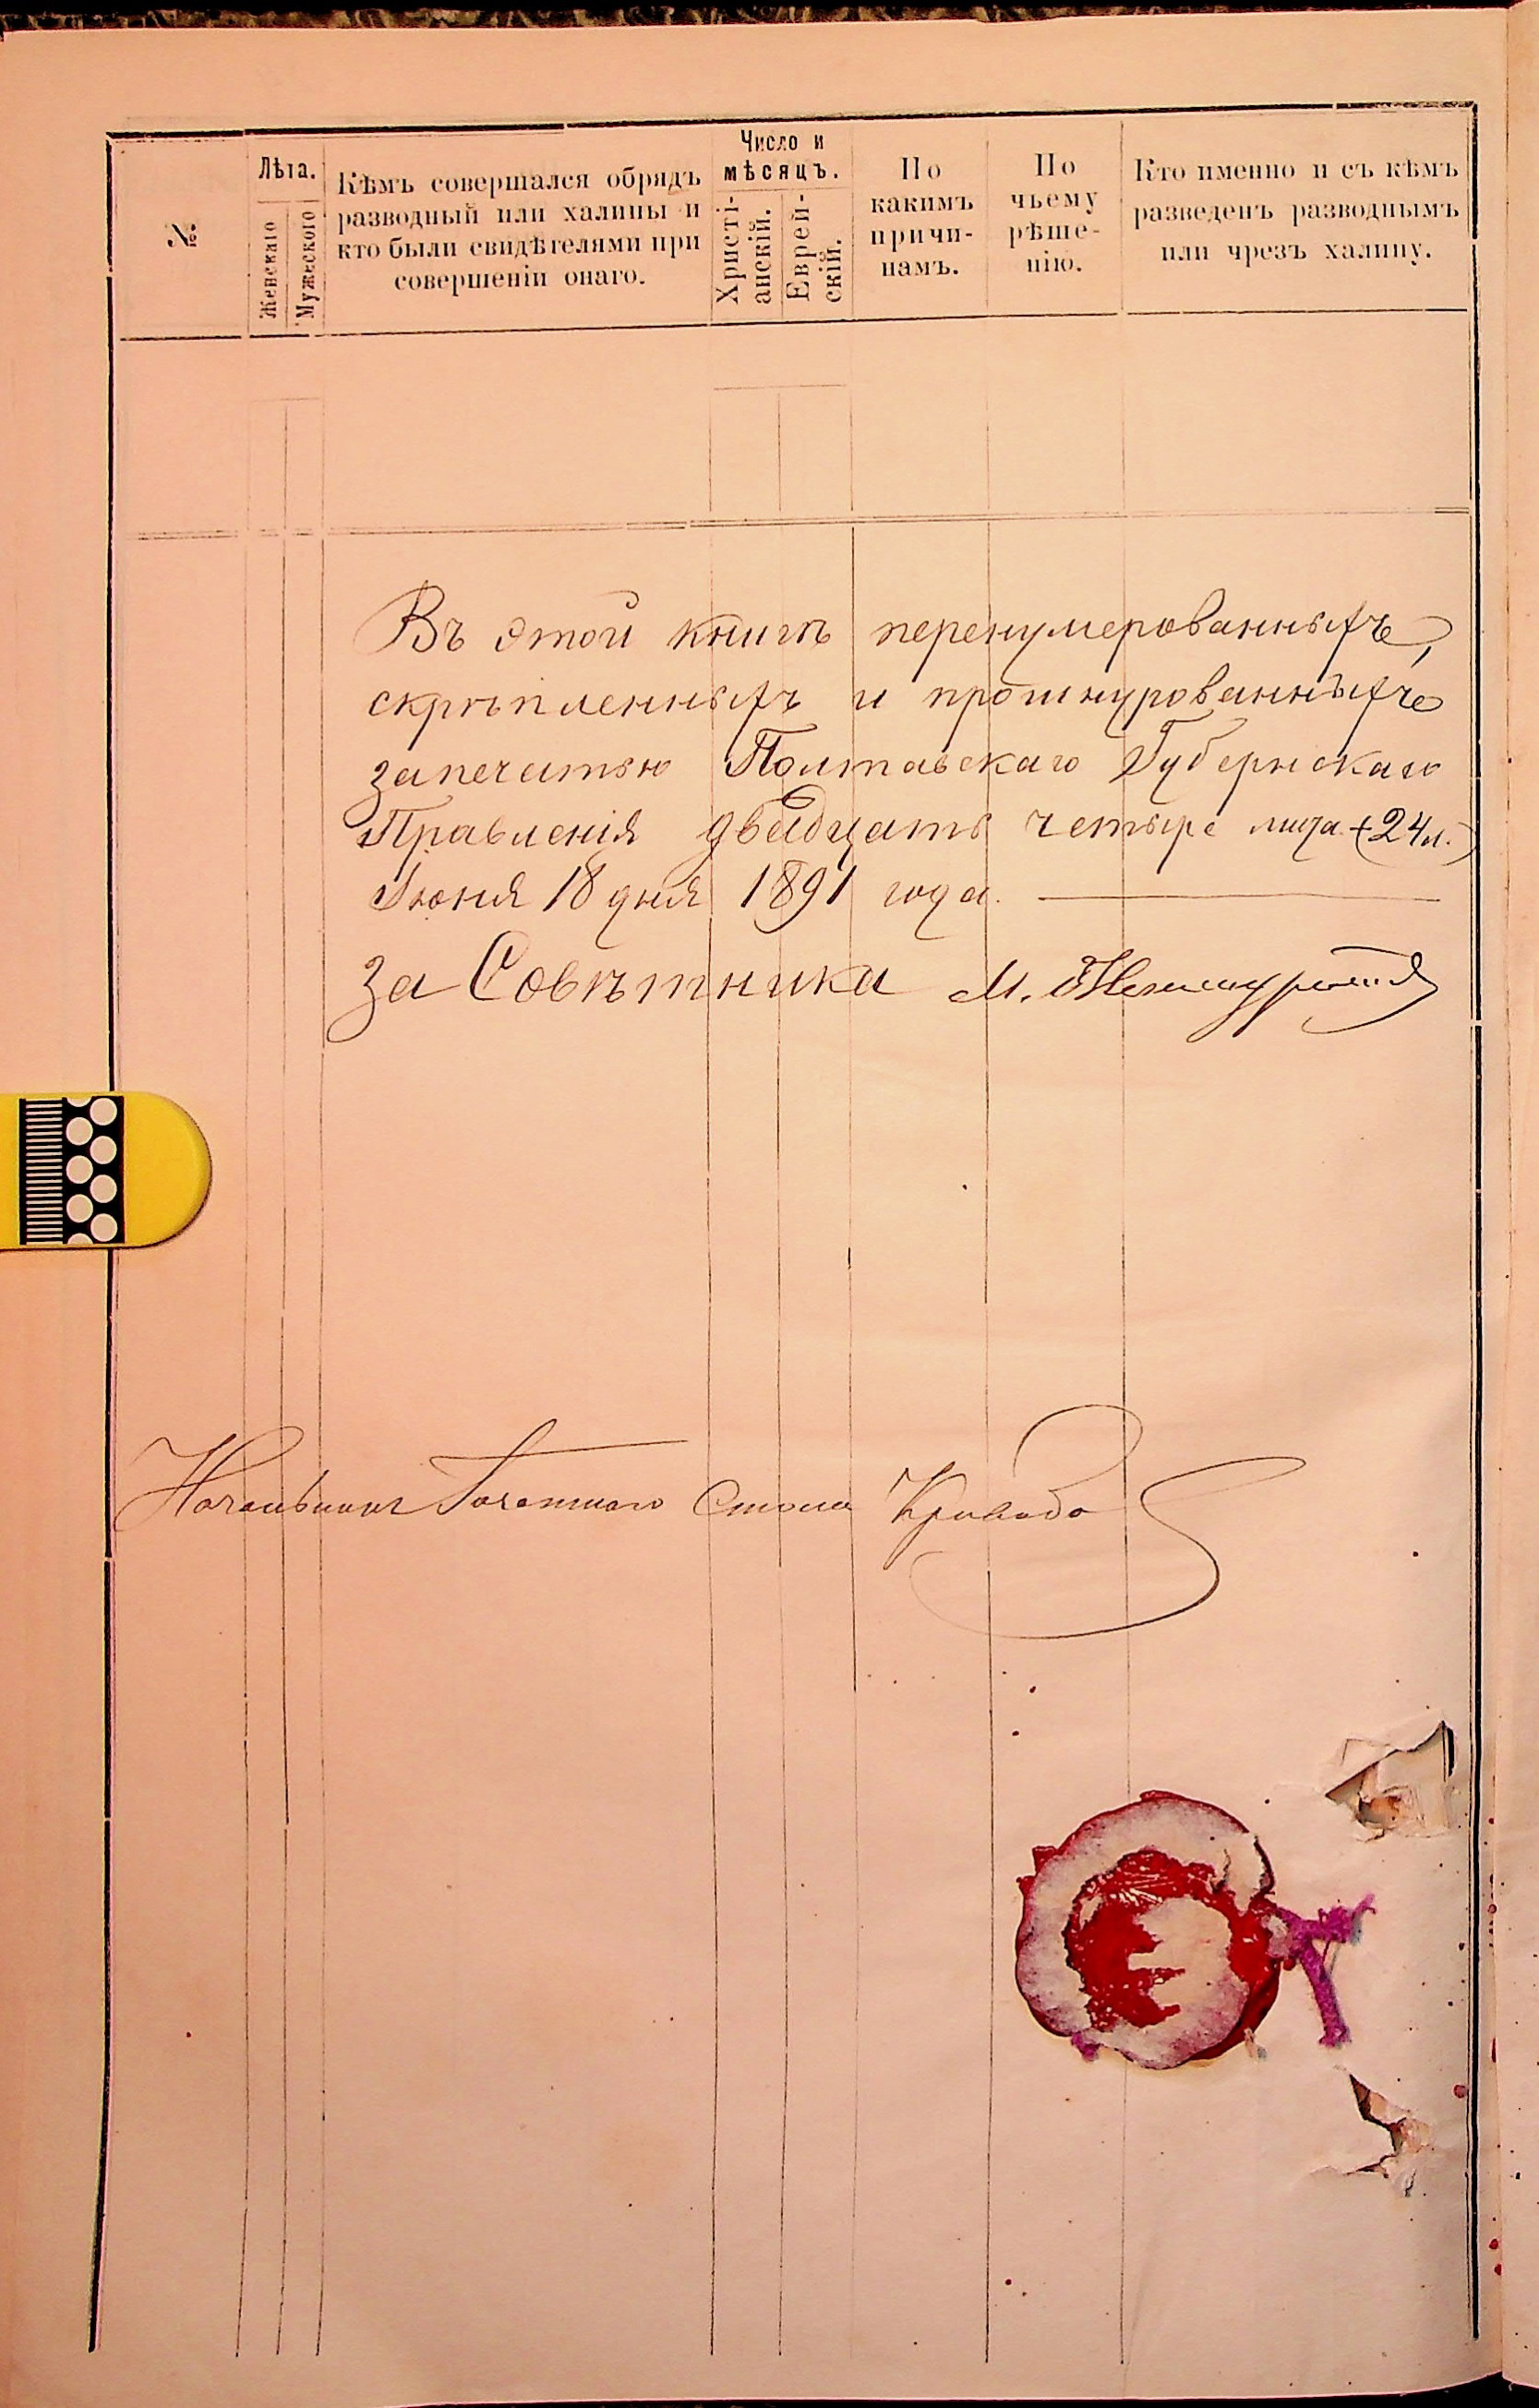 №
Лѣта.
Женскаго
Мужескаго
Кѣмъ совершался обрядъ
разводный или халицы и
кто были свидѣтелями при
совершеніи онаго.
Число и
мѣсяцъ.
Христі-
анскій.
Еврей-
скій.
По
какимъ
причи-
намъ.
По
чьему
рѣше-
нію.
Кто именно и съ кѣмъ
разведенъ разводнымъ
или чрезъ халицу.
Въ этой книгѣ перенумерованныхъ,
скрѣпленныхъ и прошнурованныхъ
за печатью Полтавскаго Губернскаго
Правленія двадцать четыре листа (24 л.)
Іюня 18 дня 1891 года.
За Совѣтника М.
Начальникъ Счетнаго Стола